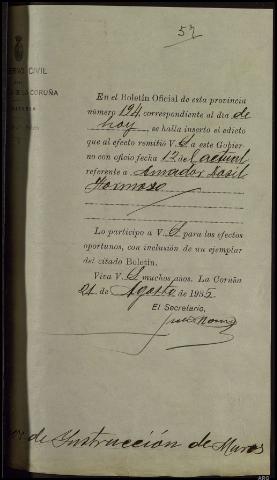 57
ERNO CIVIL
DE LA CORUÑA
En el Boletín Oficial de esta provincia
número 194 correspondiente al día de
hoy se halla inserto el edicto
que al efecto remitió V. S a este Gobier-
no con oficio fecha 12 del actual
referente a Amador Dosil
Hermoso
Lo participo a V. S para los efectos
oportunos, con inclusión de un ejemplar
del citado Boletín.
Viva V. S muchos años. La Coruña
21 de Agosto de 193
El Secretario,
de Instrucción de Muros